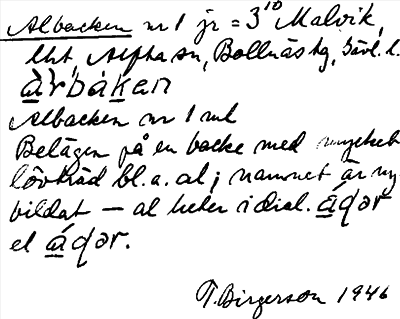 Albacken nr 1 jr = 3¹⁰ Malvik,
lht, Alfta sn, Bollnäs tg, Gävl. l.
àrbàkan
Albacken nr 1 ml
Belägen på en backe med mycket
lövträd bl.a. al; namnet är ny
bildat – al heter i dial. áqər
el áqər.
T. Birgerson 1946